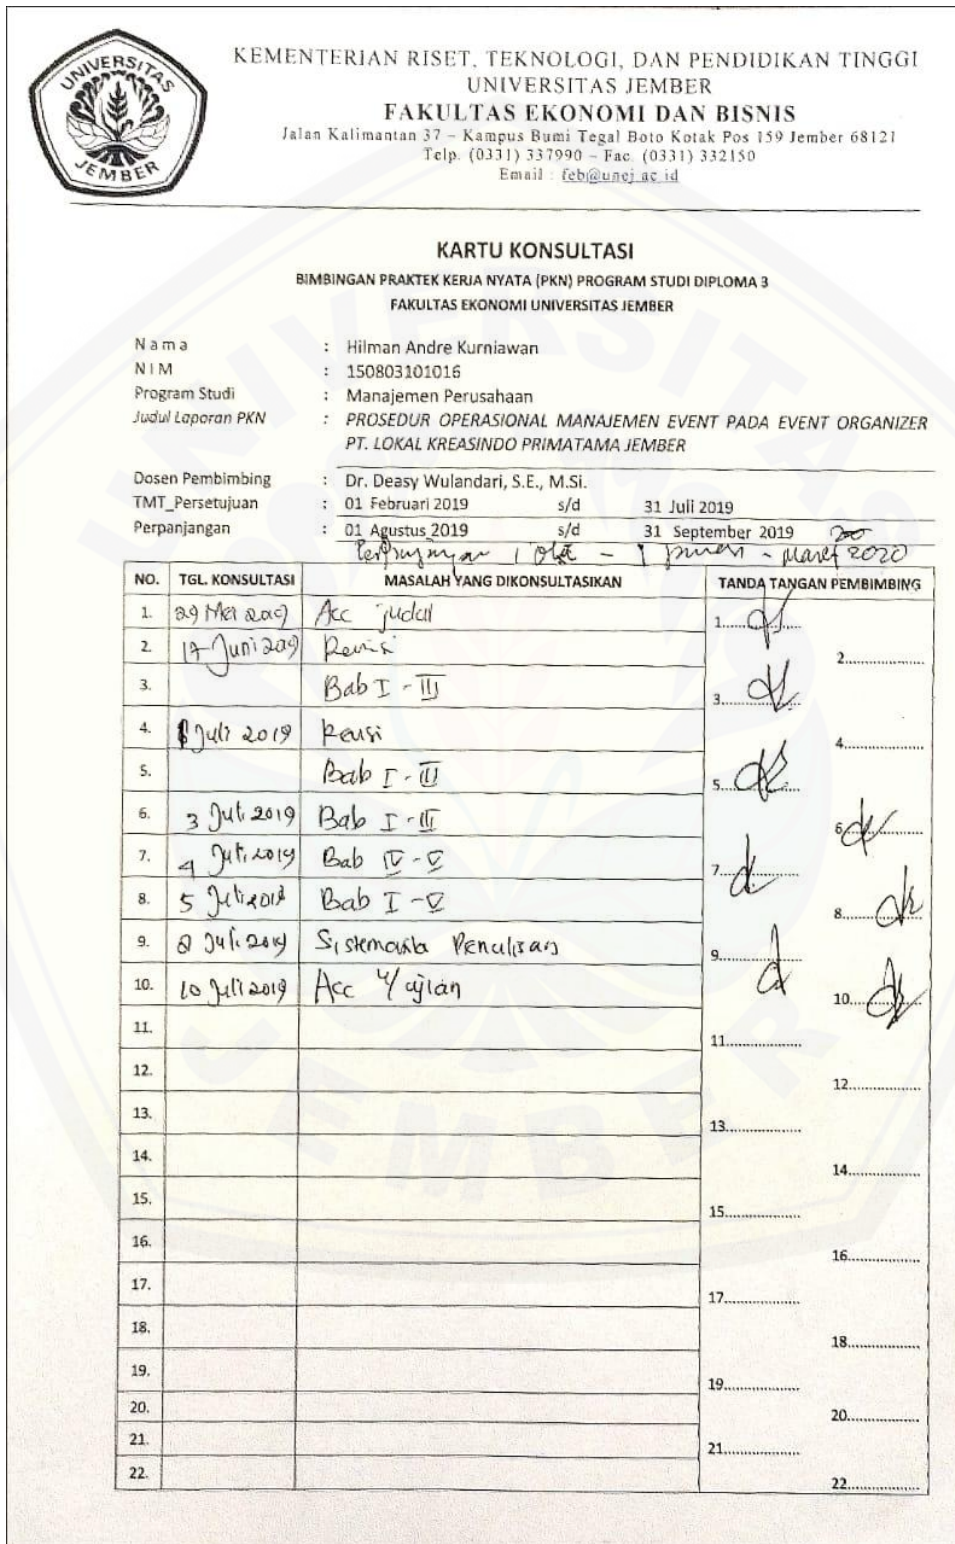 UNIVERSITAS
JEMBER
KEMENTERIAN RISET, TEKNOLOGI, DAN PENDIDIKAN TINGGI
UNIVERSITAS JEMBER
FAKULTAS EKONOMI DAN BISNIS
Jalan Kalimantan 37 – Kampus Bumi Tegal Boto Kotak Pos 159 Jember 68121
Telp. (0331) 337990 – Fac. (0331) 332150
Email : feb@unej.ac.id
KARTU KONSULTASI
BIMBINGAN PRAKTEK KERJA NYATA (PKN) PROGRAM STUDI DIPLOMA 3
FAKULTAS EKONOMI UNIVERSITAS JEMBER
Nama : Hilman Andre Kurniawan
NIM : 150803101016
Program Studi : Manajemen Perusahaan
Judul Laporan PKN : PROSEDUR OPERASIONAL MANAJEMEN EVENT PADA EVENT ORGANIZER
PT. LOKAL KREASINDO PRIMATAMA JEMBER
Dosen Pembimbing : Dr. Deasy Wulandari, S.E., M.Si.
TMT_Persetujuan : 01 Februari 2019 s/d 31 Juli 2019
Perpanjangan : 01 Agustus 2019 s/d 31 September 2019
1 - Maret 2020
NO. TGL. KONSULTASI MASALAH YANG DIKONSULTASIKAN TANDA TANGAN PEMBIMBING
1. 29 Mei 2019 Acc judul 1.
2. 17 Juni 2019 Revisi 2.
3. Bab I - III 3.
4. Juli 2019 Revisi 4.
5. Bab I - III 5.
6. 3 Juli 2019 Bab I - III 6.
7. 4 Juli 2019 Bab IV - V 7.
8. 5 Juli 2019 Bab I - V 8.
9. Juli 2019 Penulisan 9.
10. 10 Juli 2019 Acc u/ ujian 10.
11. 11.
12. 12.
13. 13.
14. 14.
15. 15.
16. 16.
17. 17.
18. 18.
19. 19.
20. 20.
21. 21.
22. 22.